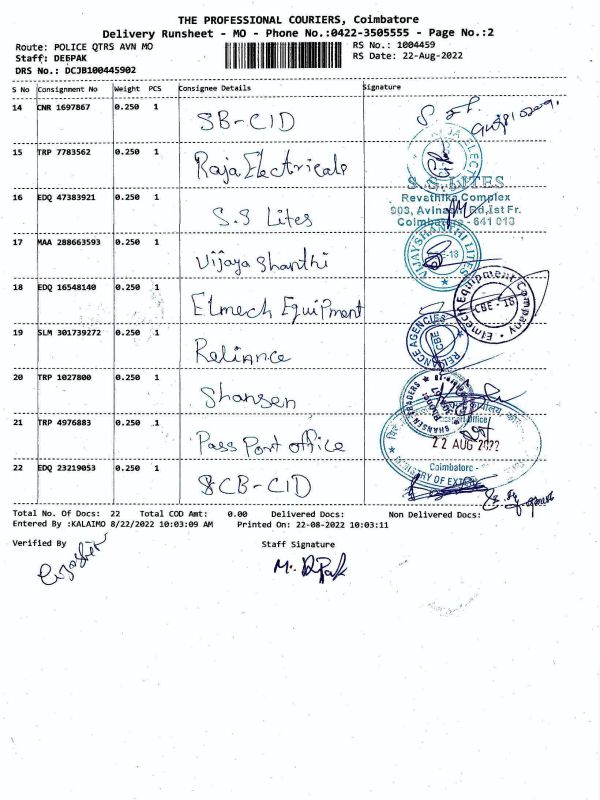 THE PROFESSIONAL COURIERS, Coimbatore
Delivery Runsheet - MO - Phone No.:0422-3505555 - Page No.:2
Route: POLICE QTRS AVN MO RS No.: 1004459
Staff: DEEPAK RS Date: 22-Aug-2022
DRS No.: DCJB100445902
S No Consignment No Weight PCS Consignee Details Signature
14 CNR 1697867 0.250 1 SB-CID
15 TRP 7783562 0.250 1 Raja Electricals
16 EDQ 47383921 0.250 1 S.S Lites
S.S. LITES
Revathika Complex
903, Avinashi Rd, Ist Fr.
Coimbatore - 641 018
17 MAA 288663593 0.250 1 Vijaya Shanthi
VIJAYSHANTHI LITES
18 EDQ 16548140 0.250 1 Elmech Equipment
Elmech Equipment Company
CBE - 18
19 SLM 301739272 0.250 1 Reliance
RELIANCE AGENCIES
CBE
20 TRP 1027800 0.250 1 Shansen
SHANSEN TRADERS
21 TRP 4976883 0.250 1 Pass Port office
Passport Office
22 AUG 2022
Coimbatore
22 EDQ 23219053 0.250 1 SCB-CID
Total No. Of Docs: 22 Total COD Amt: 0.00 Delivered Docs: Non Delivered Docs:
Entered By :KALAIMO 8/22/2022 10:03:09 AM Printed On: 22-08-2022 10:03:11
Verified By Staff Signature